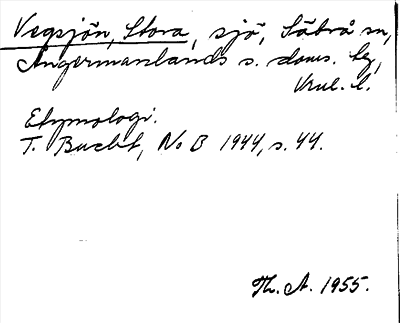 Vegsjön, Stora, sjö, Säbrå sn,
Ångermanlands s. doms. tg,
Vnl. l.
Etymologi.
T. Bucht, NoB 1944, s. 44.
Th. A. 1955.